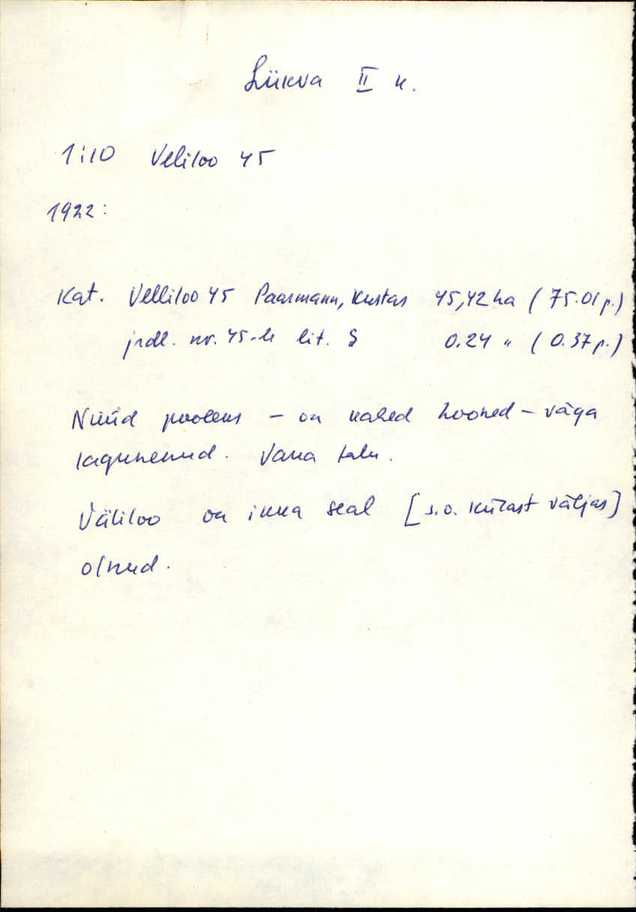 Liikva II k.
1:10 Veliloo 45
1922:
Kat. Velliloo 45 Paasmann, Kustas 45,42 ha (75.01 p.)
jrdl. nr. 45-le lit. S 0.24 " (0.37 p.)
Nüüd pooleks - on kahed hooned - väga
lagunenud. Vana talu.
Väliloo on ikka seal [s.o. külast väljas]
olnud.